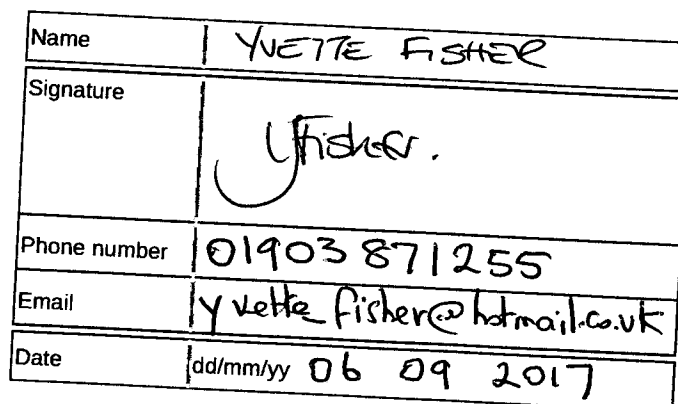 Name YVETTE FISHER
Signature YFisher.
Phone number 01903 871255
Email yvettefisher@hotmail.co.uk
Date dd/mm/yy 06 09 2017